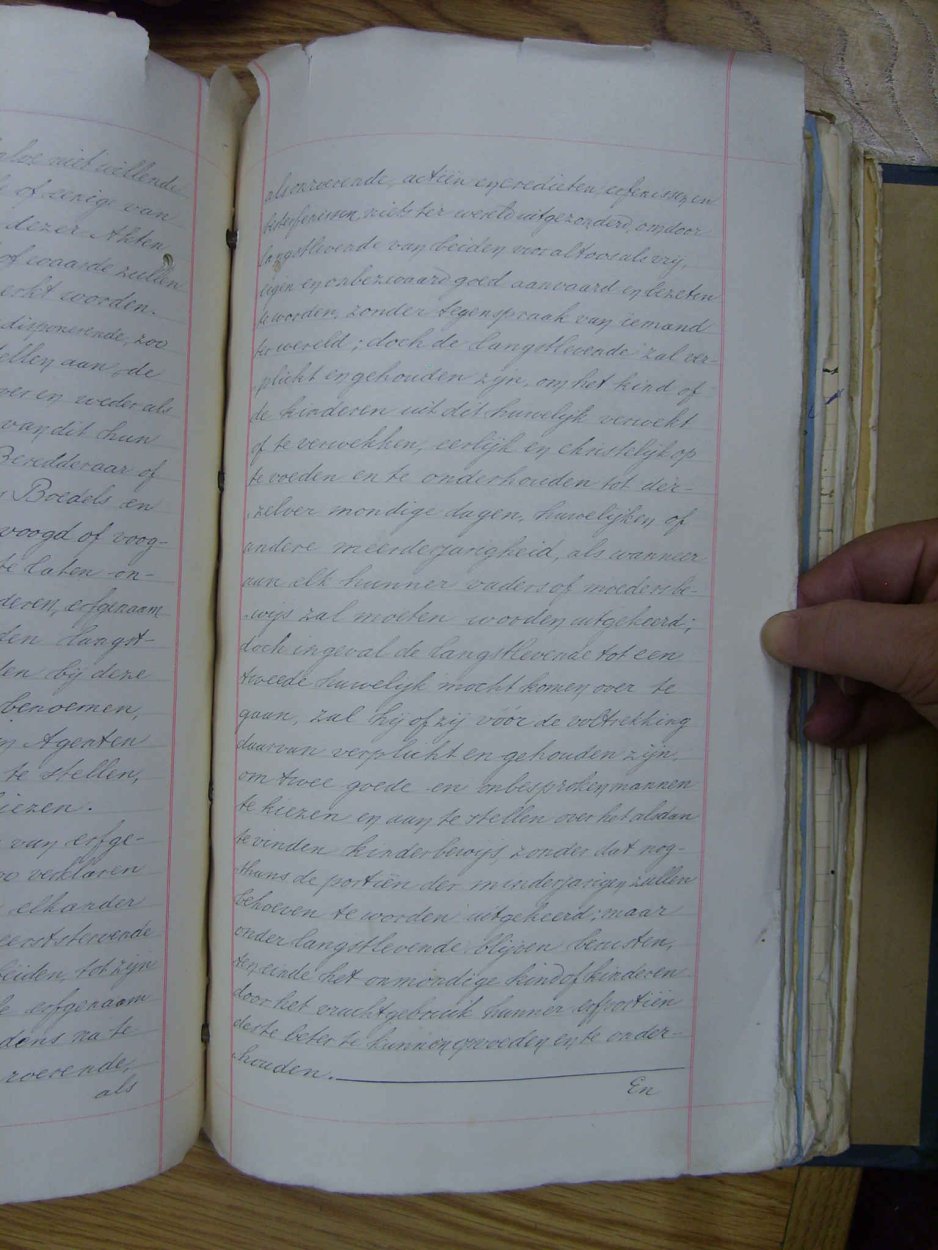 niet willende
of eenige van
dezer Akten
of waarde zullen
worden.
disponerende, zoo
stellen aan, de
over en weder als
van dit hun
Beredderaar of
Boedels en
voogd of voog-
te laten on-
deren, erfgenaam
den langst-
den bij deze
benoemen,
Agenten
te stellen,
kiezen.
van erfge-
zoo verklaren
elkander
eerststervende
beiden, tot zijn
erfgenaam
na te
roerende,
als
als onroerende, actiën en credieten, erfenissen en
besterfenissen, niets ter wereld uitgezonderd, om door
Langstlevende van beiden voor altoos als vrij
eigen en onbezwaard goed aanvaard en bezeten
te worden, zonder tegenspraak van iemand
ter wereld; doch de Langstlevende zal ver-
plicht en gehouden zijn, om het kind of
de kinderen uit dit huwelijk verwekt
of te verwekken, eerlijk en christelijk op
te voeden en te onderhouden tot der-
zelver mondige dagen, huwelijken of
andere meerderjarigheid, als wanneer
aan elk hunner vaders of moeders be-
wijs zal moeten worden uitgekeerd;
doch ingeval de Langstlevende tot een
tweede huwelijk mocht komen over te
gaan, zal hij of zij vóór de voltrekking
daarvan verplicht en gehouden zijn,
om twee goede en onbesproken mannen
te kiezen en aan te stellen over het alsdan
te vinden kinderbewijs, zonder dat nog-
thans de portiën der minderjarigen zullen
behoeven te worden uitgekeerd; maar
onder langstlevende blijven berusten,
ten einde het onmondige kind of kinderen
door het vruchtgebruik hunner erfportiën
deste beter te kunnen opvoeden en te onder-
houden.
En